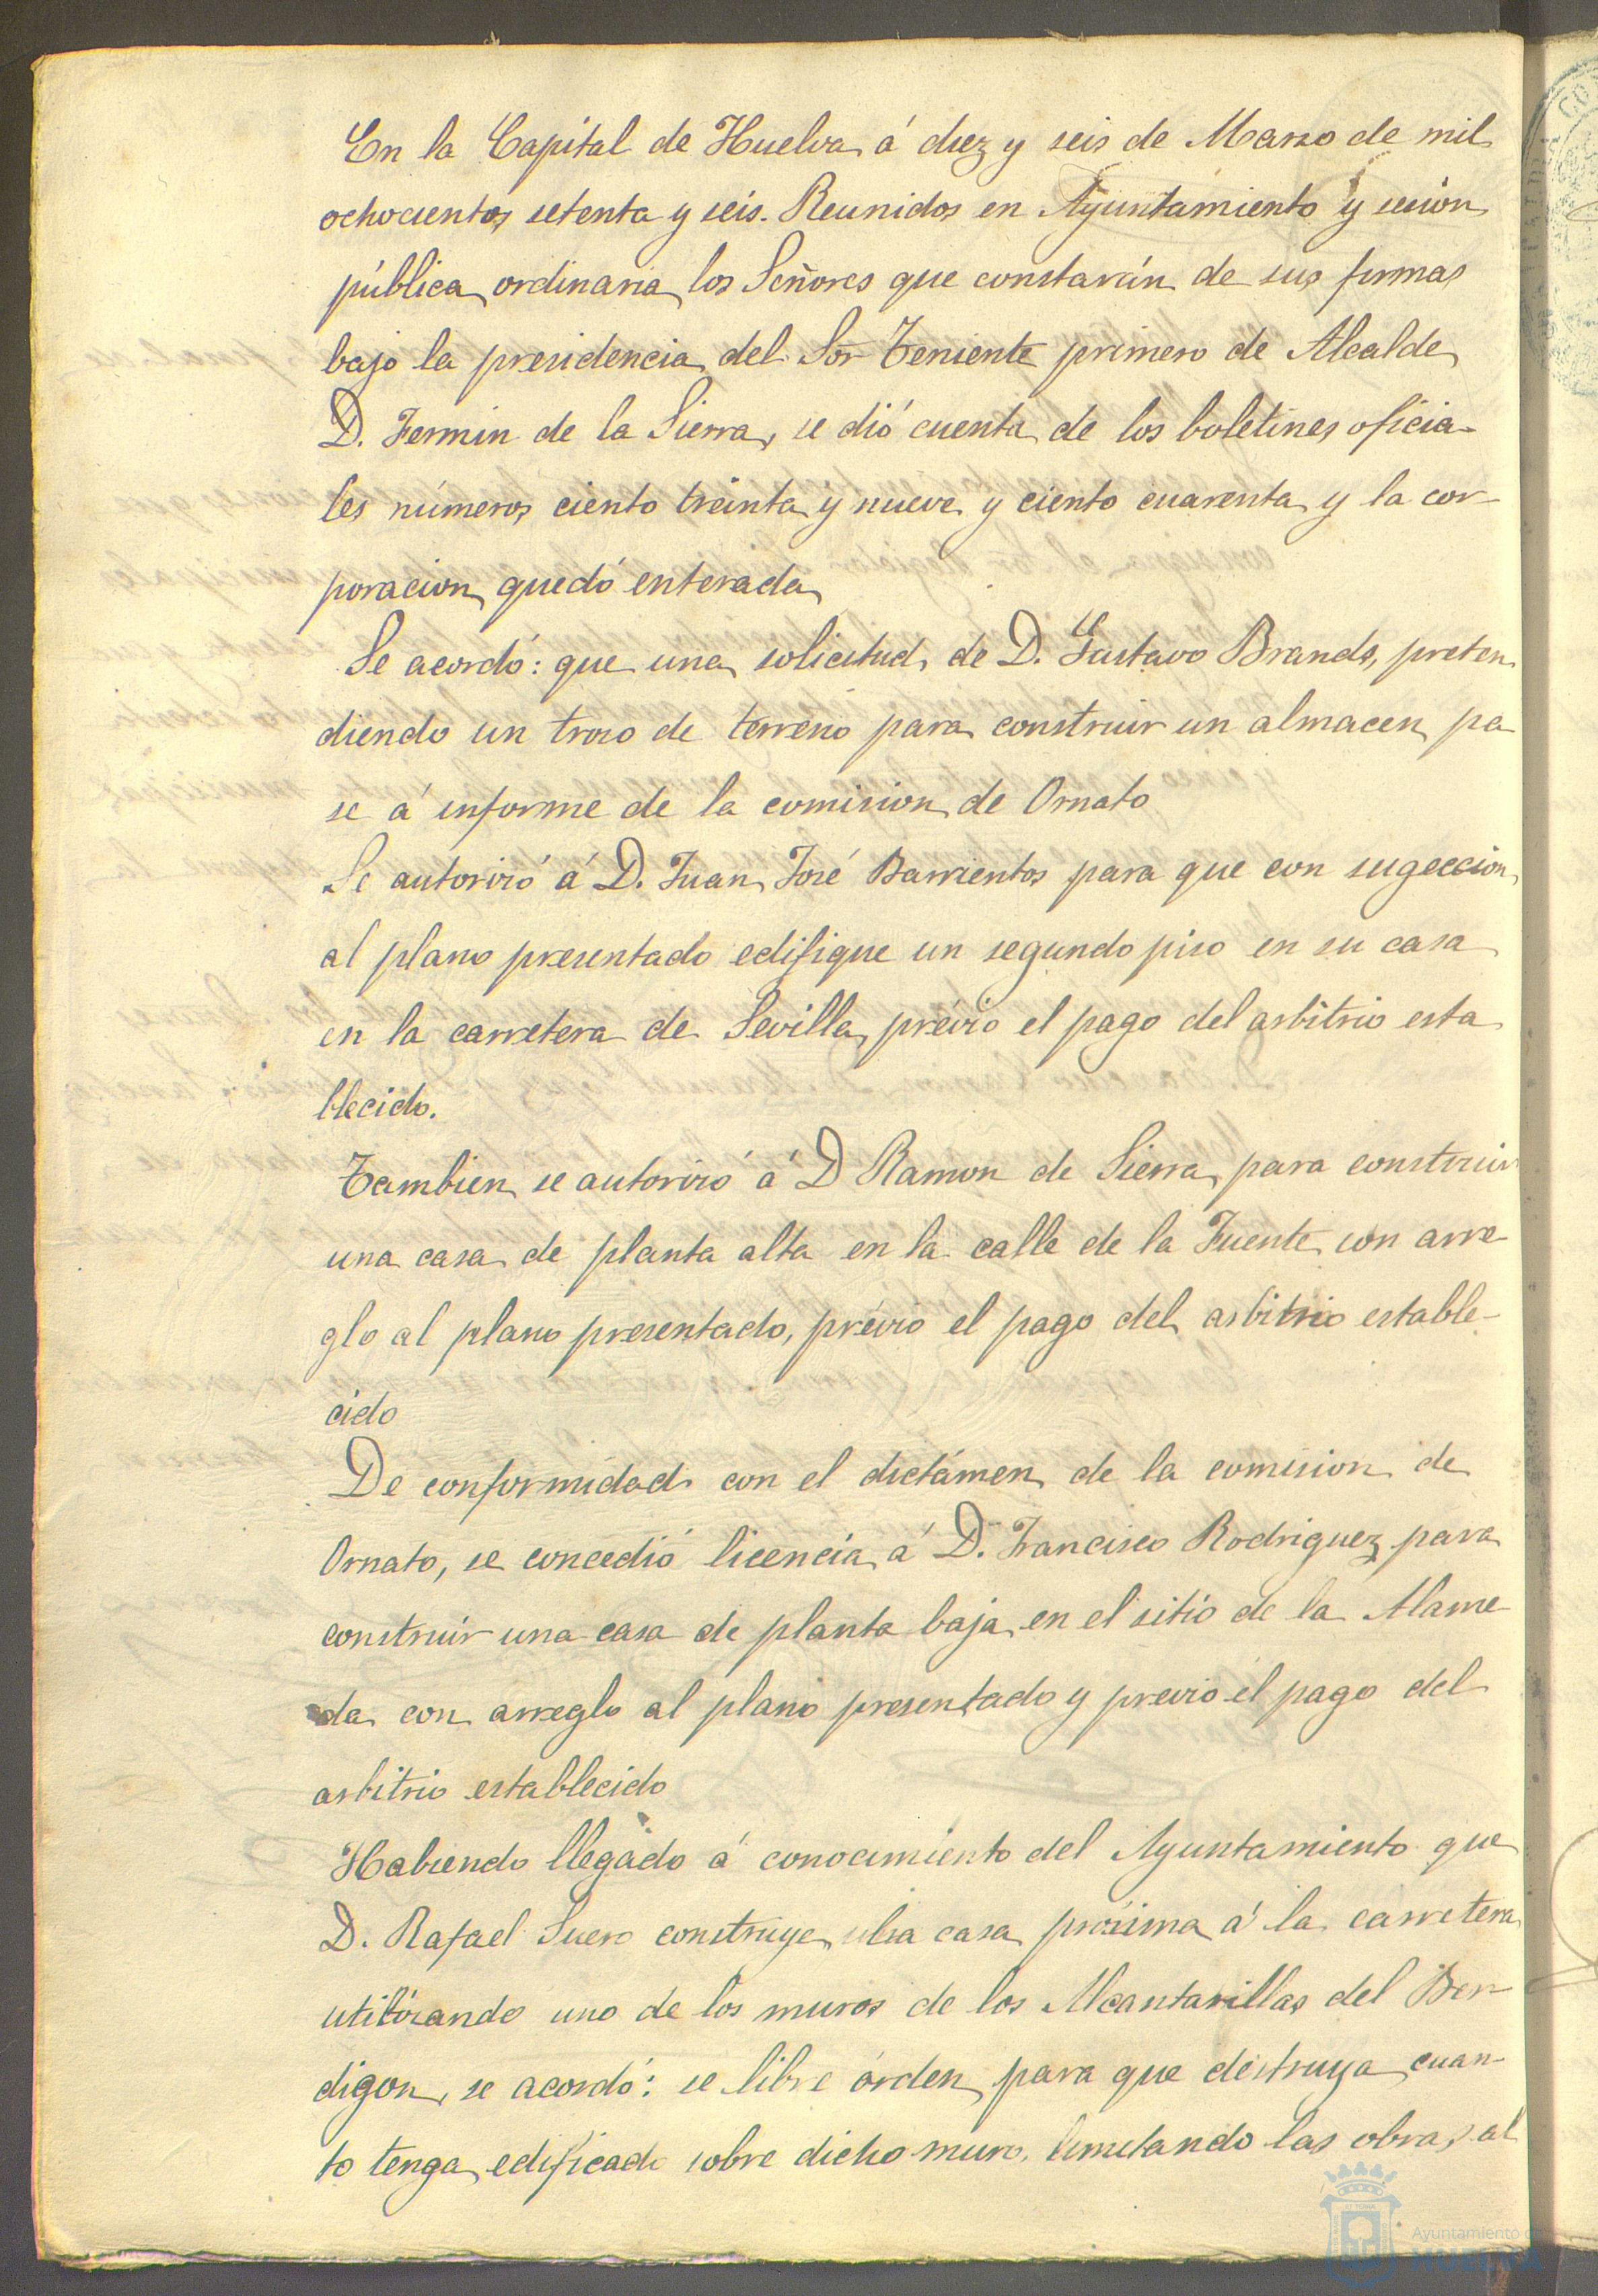 En la Capital de Huelva á diez y seis de Marzo de mil
ochocientos setenta y seis. Reunidos en Ayuntamiento y sesion
pública ordinaria los Señores que constarán de sus firmas
bajo la presidencia del Sor Teniente primero de Alcalde
D. Fermin de la Sierra, se dió cuenta de los boletines oficia-
les números ciento treinta y nueve y ciento cuarenta y la cor-
poracion quedó enterada
Se acordó: que una solicitud de D. Gustavo Brands, preten
diendo un trozo de terreno para construir un almacen pa
se á informe de la comision de Ornato
Se autorizó á D. Juan José Barrientos para que con sugeccion
al plano presentado edifique un segundo piso en su casa
en la carretera de Sevilla, prévio el pago del arbitrio esta
blecido.
Tambien se autorizó á D Ramon de Sierra, para construir
una casa de planta alta en la calle de la Fuente con arre
glo al plano presentado, prévio el pago del arbitrio estable-
cido
De conformidad con el dictámen de la comision de
Ornato, se concedió licencia á D. Francisco Rodriguez para
construir una casa de planta baja en el sitio de la Alame
da con arreglo al plano presentado y previo el pago del
arbitrio establecido
Habiendo llegado á conocimiento del Ayuntamiento que
D. Rafael Suero construye una casa próxima á la carretera
utilizando uno de los muros de los Alcantarillas del Ber-
digon, se acordó: se libre órden para que destruya cuan-
to tenga edificado sobre dicho muro, limitando las obras al
Ayuntamiento
HUELVA